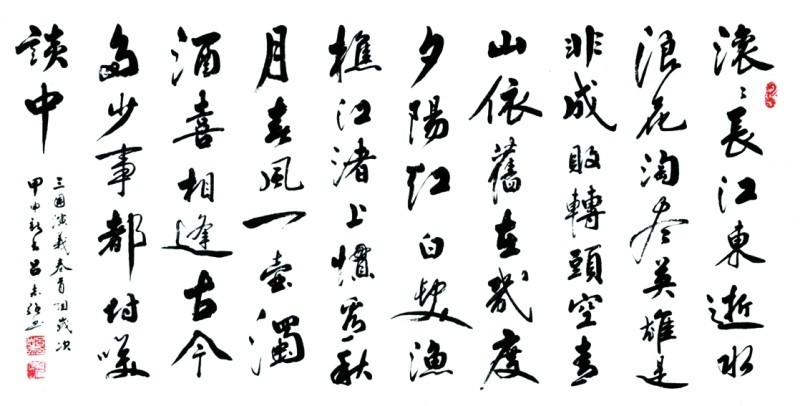 滾〻長江東逝水
浪花淘盡英雄是
非成敗轉頭空青
山依舊在幾度
夕陽紅白髮漁
樵江渚上慣看秋
月春風一壺濁
酒喜相逢古今
多少事都付笑
談中
三國演義卷首詞歲次
甲申